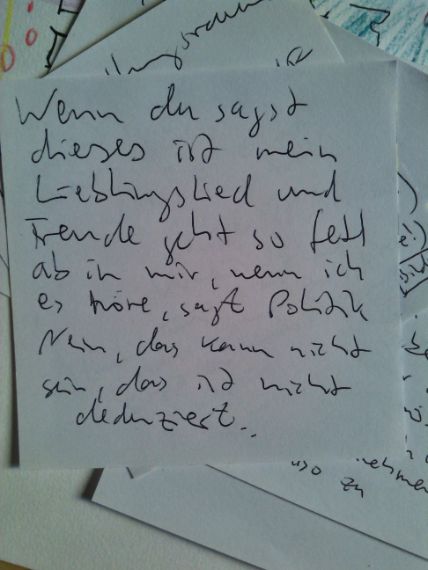 Wenn du sagst
dieses ist mein
Lieblingslied und
Freude geht so fett
ab in mir, wenn ich
es höre, sagt Politik
Nein, das kann nicht
sein, das ist nicht
deduziert...
nehmen
zu